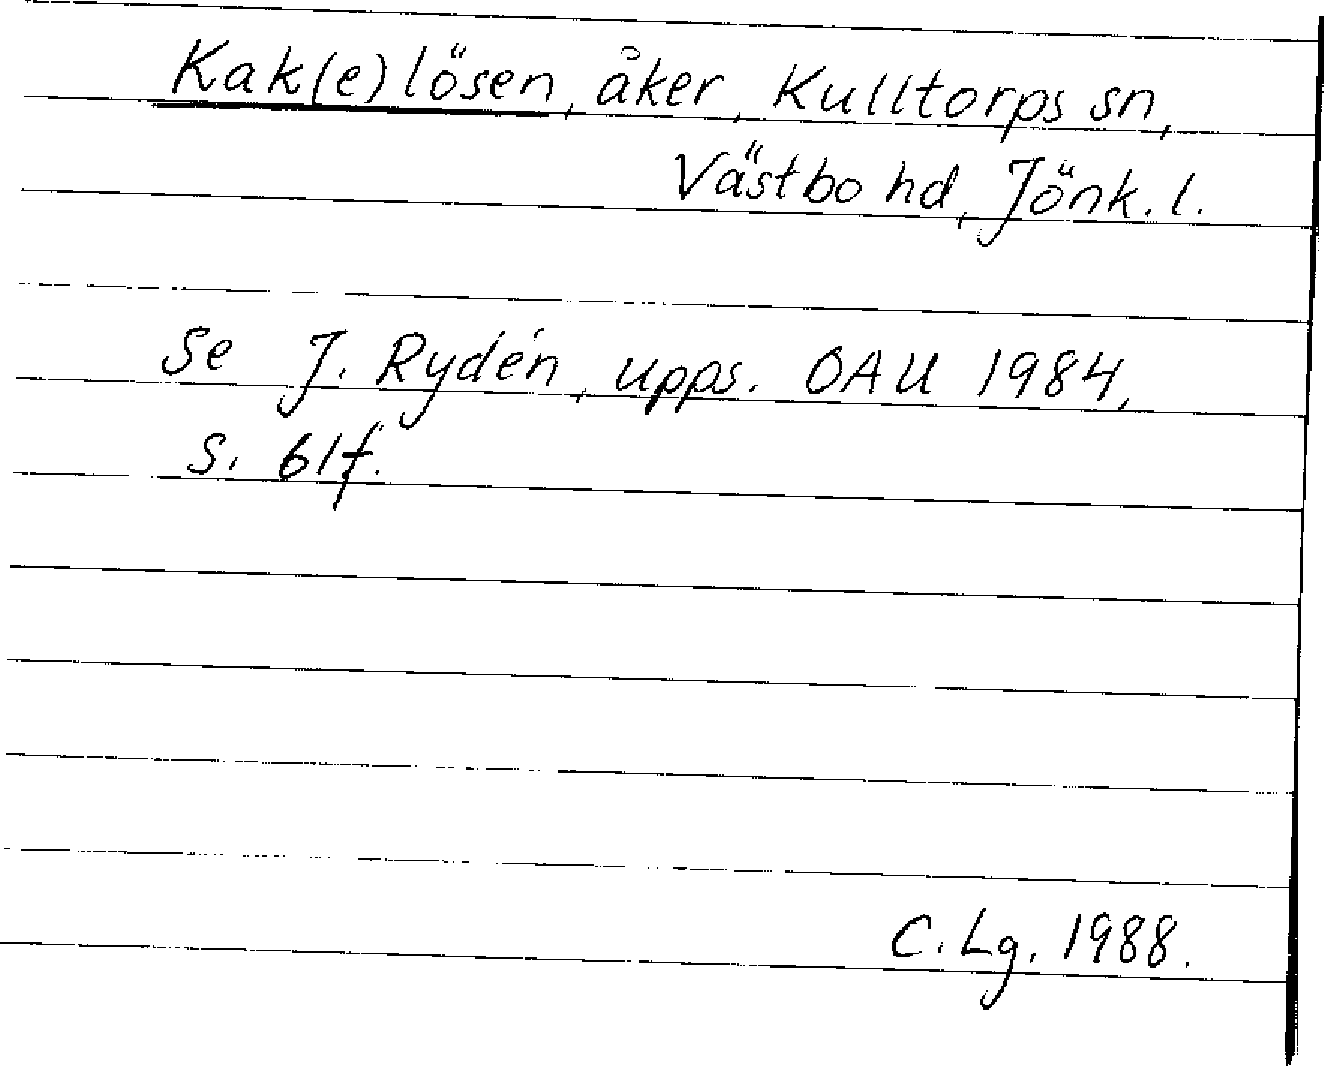 Kak(e)lösen, åker, Kulltorps sn,
Västbo hd, Jönk. l.
Se J. Rydén, upps. OAU 1984,
s. 61f.
C. Lg. 1988.